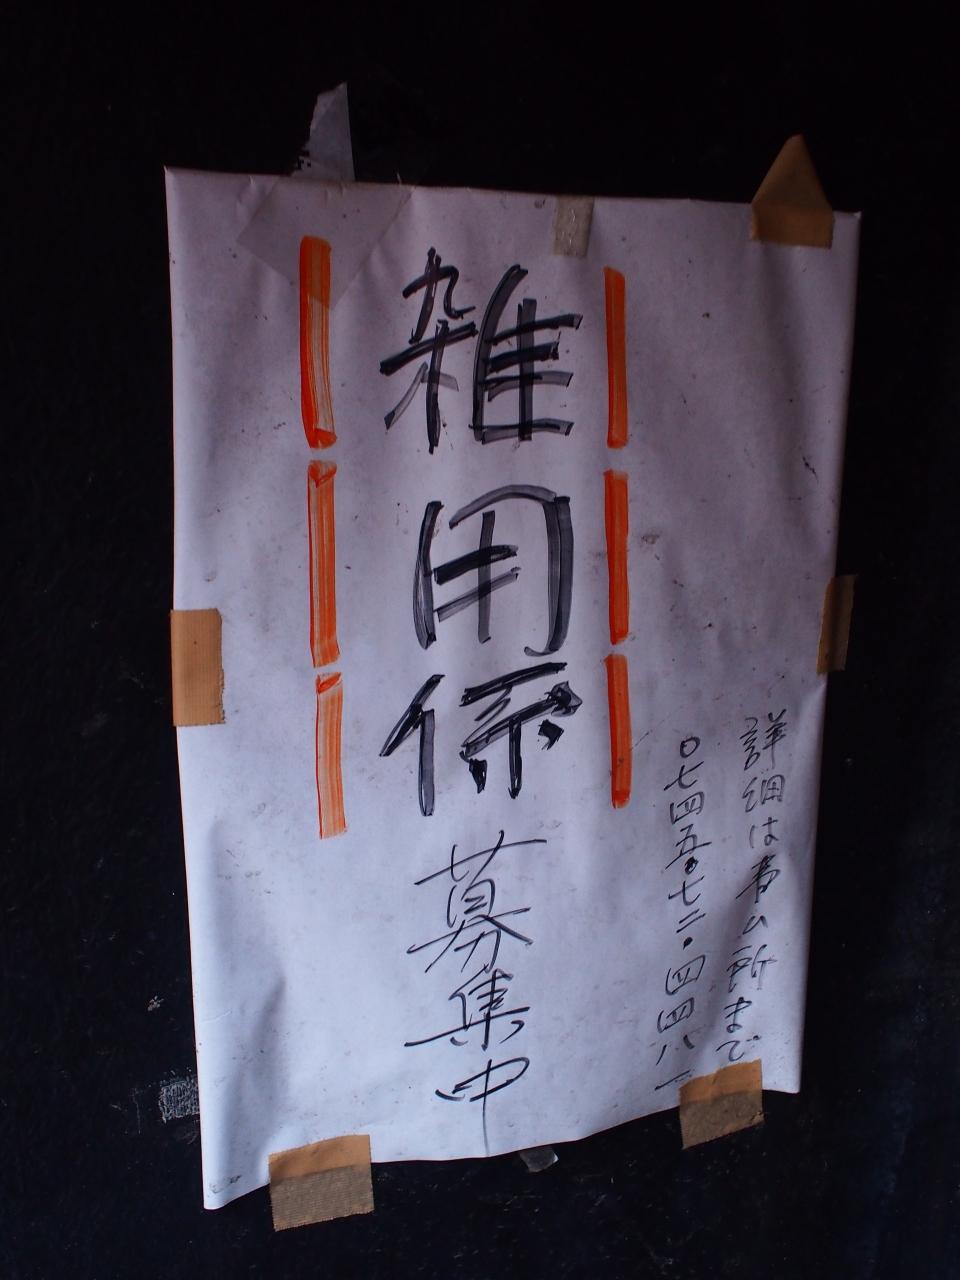 詳細は事ム所まで
〇七四五・七二・四四八一
雑用係募集中